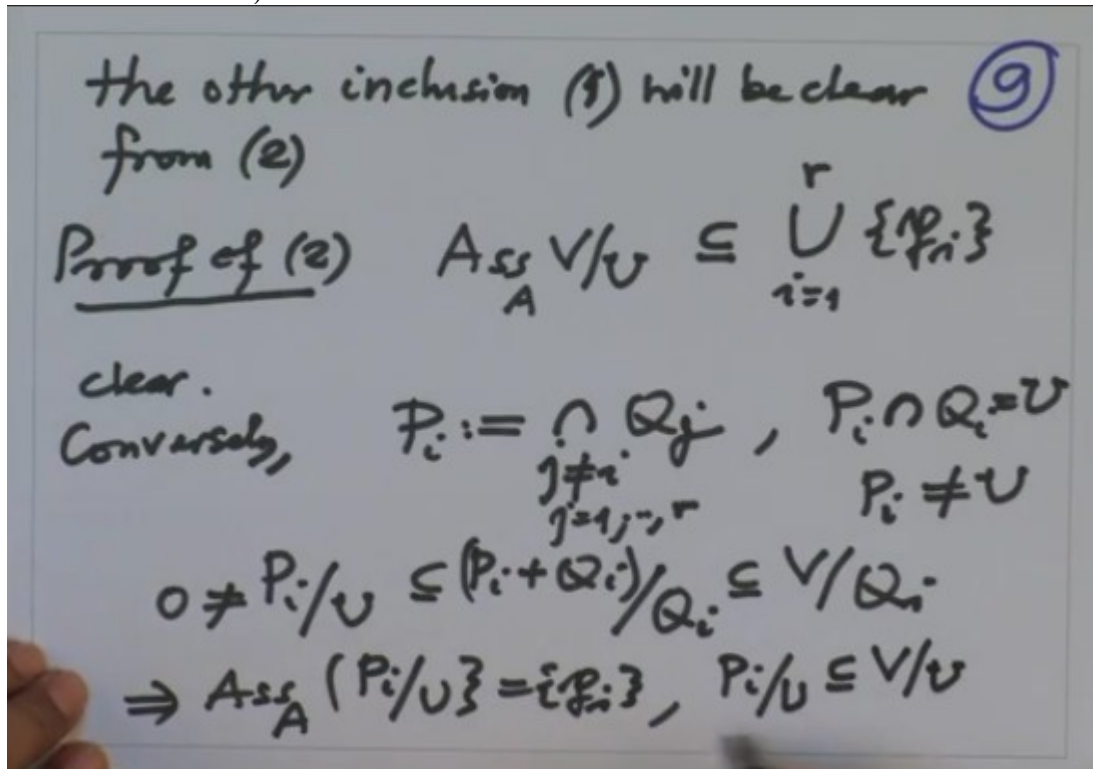 the other inclusion (1) will be clear ⑨
from (2)
Proof of (2) Ass_A V/U ⊆ ⋃_{i=1}^{r} {𝔭_i}
clear.
Conversely, P_i := ∩_{j≠i, j=1,..,r} Q_j , P_i ∩ Q_i = U
P_i ≠ U
0 ≠ P_i/U ⊆ (P_i + Q_i)/Q_i ⊆ V/Q_i
⇒ Ass_A (P_i/U} = {𝔭_i}, P_i/U ⊆ V/U